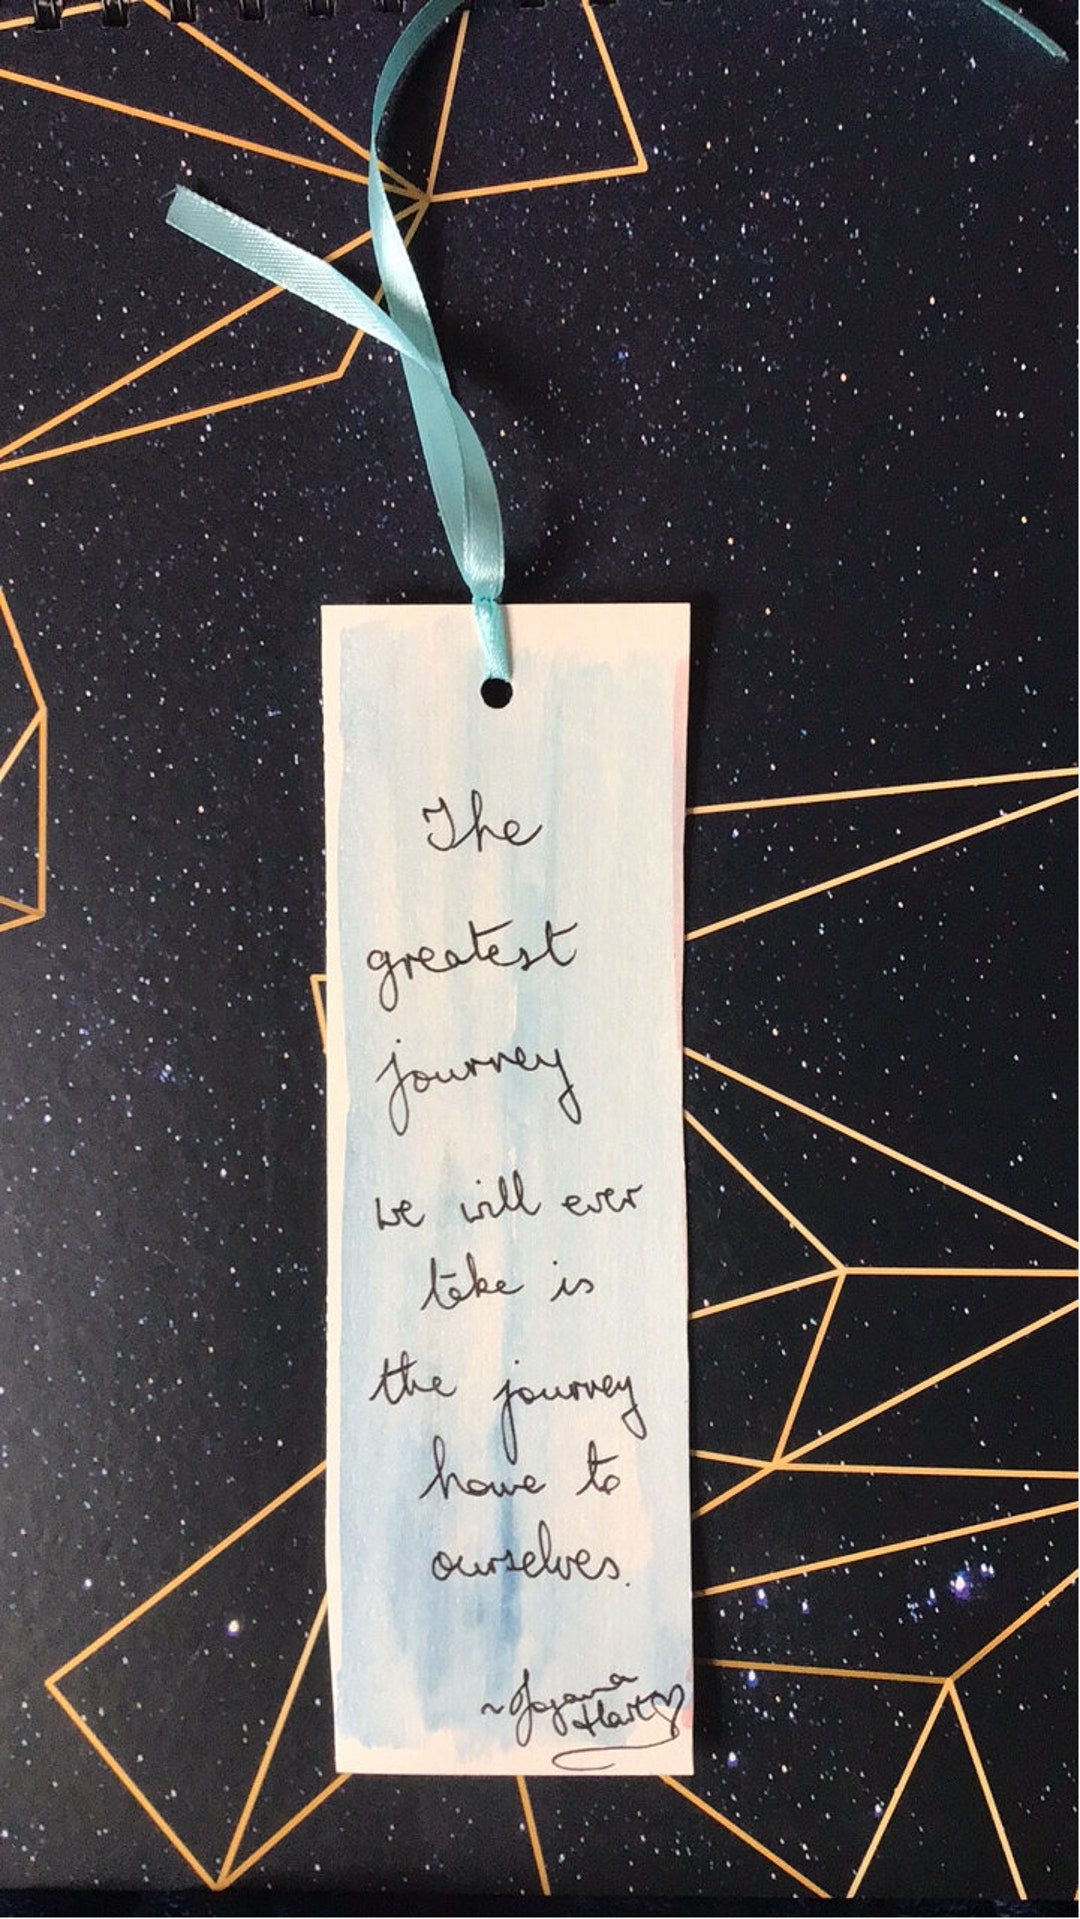 The
greatest
journey
we will ever
take is
the journey
home to
ourselves.
Hart